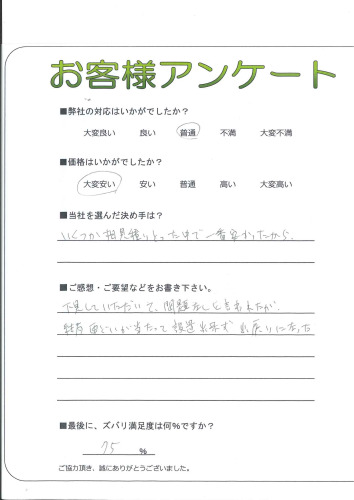 お客様アンケート
■弊社の対応はいかがでしたか?
大変良い 良い 普通 不満 大変不満
■価格はいかがでしたか?
大変安い 安い 普通 高い 大変高い
■当社を選んだ決め手は?
いくつか相見積りとった中で一番安かったから、
■ご感想・ご要望などをお書き下さい。
下見していただいて、問題なしと言われたが、
結局 が当たって設置出来ず 戻りになった
■最後に、ズバリ満足度は何%ですか?
75 %
ご協力頂き、誠にありがとうございました。